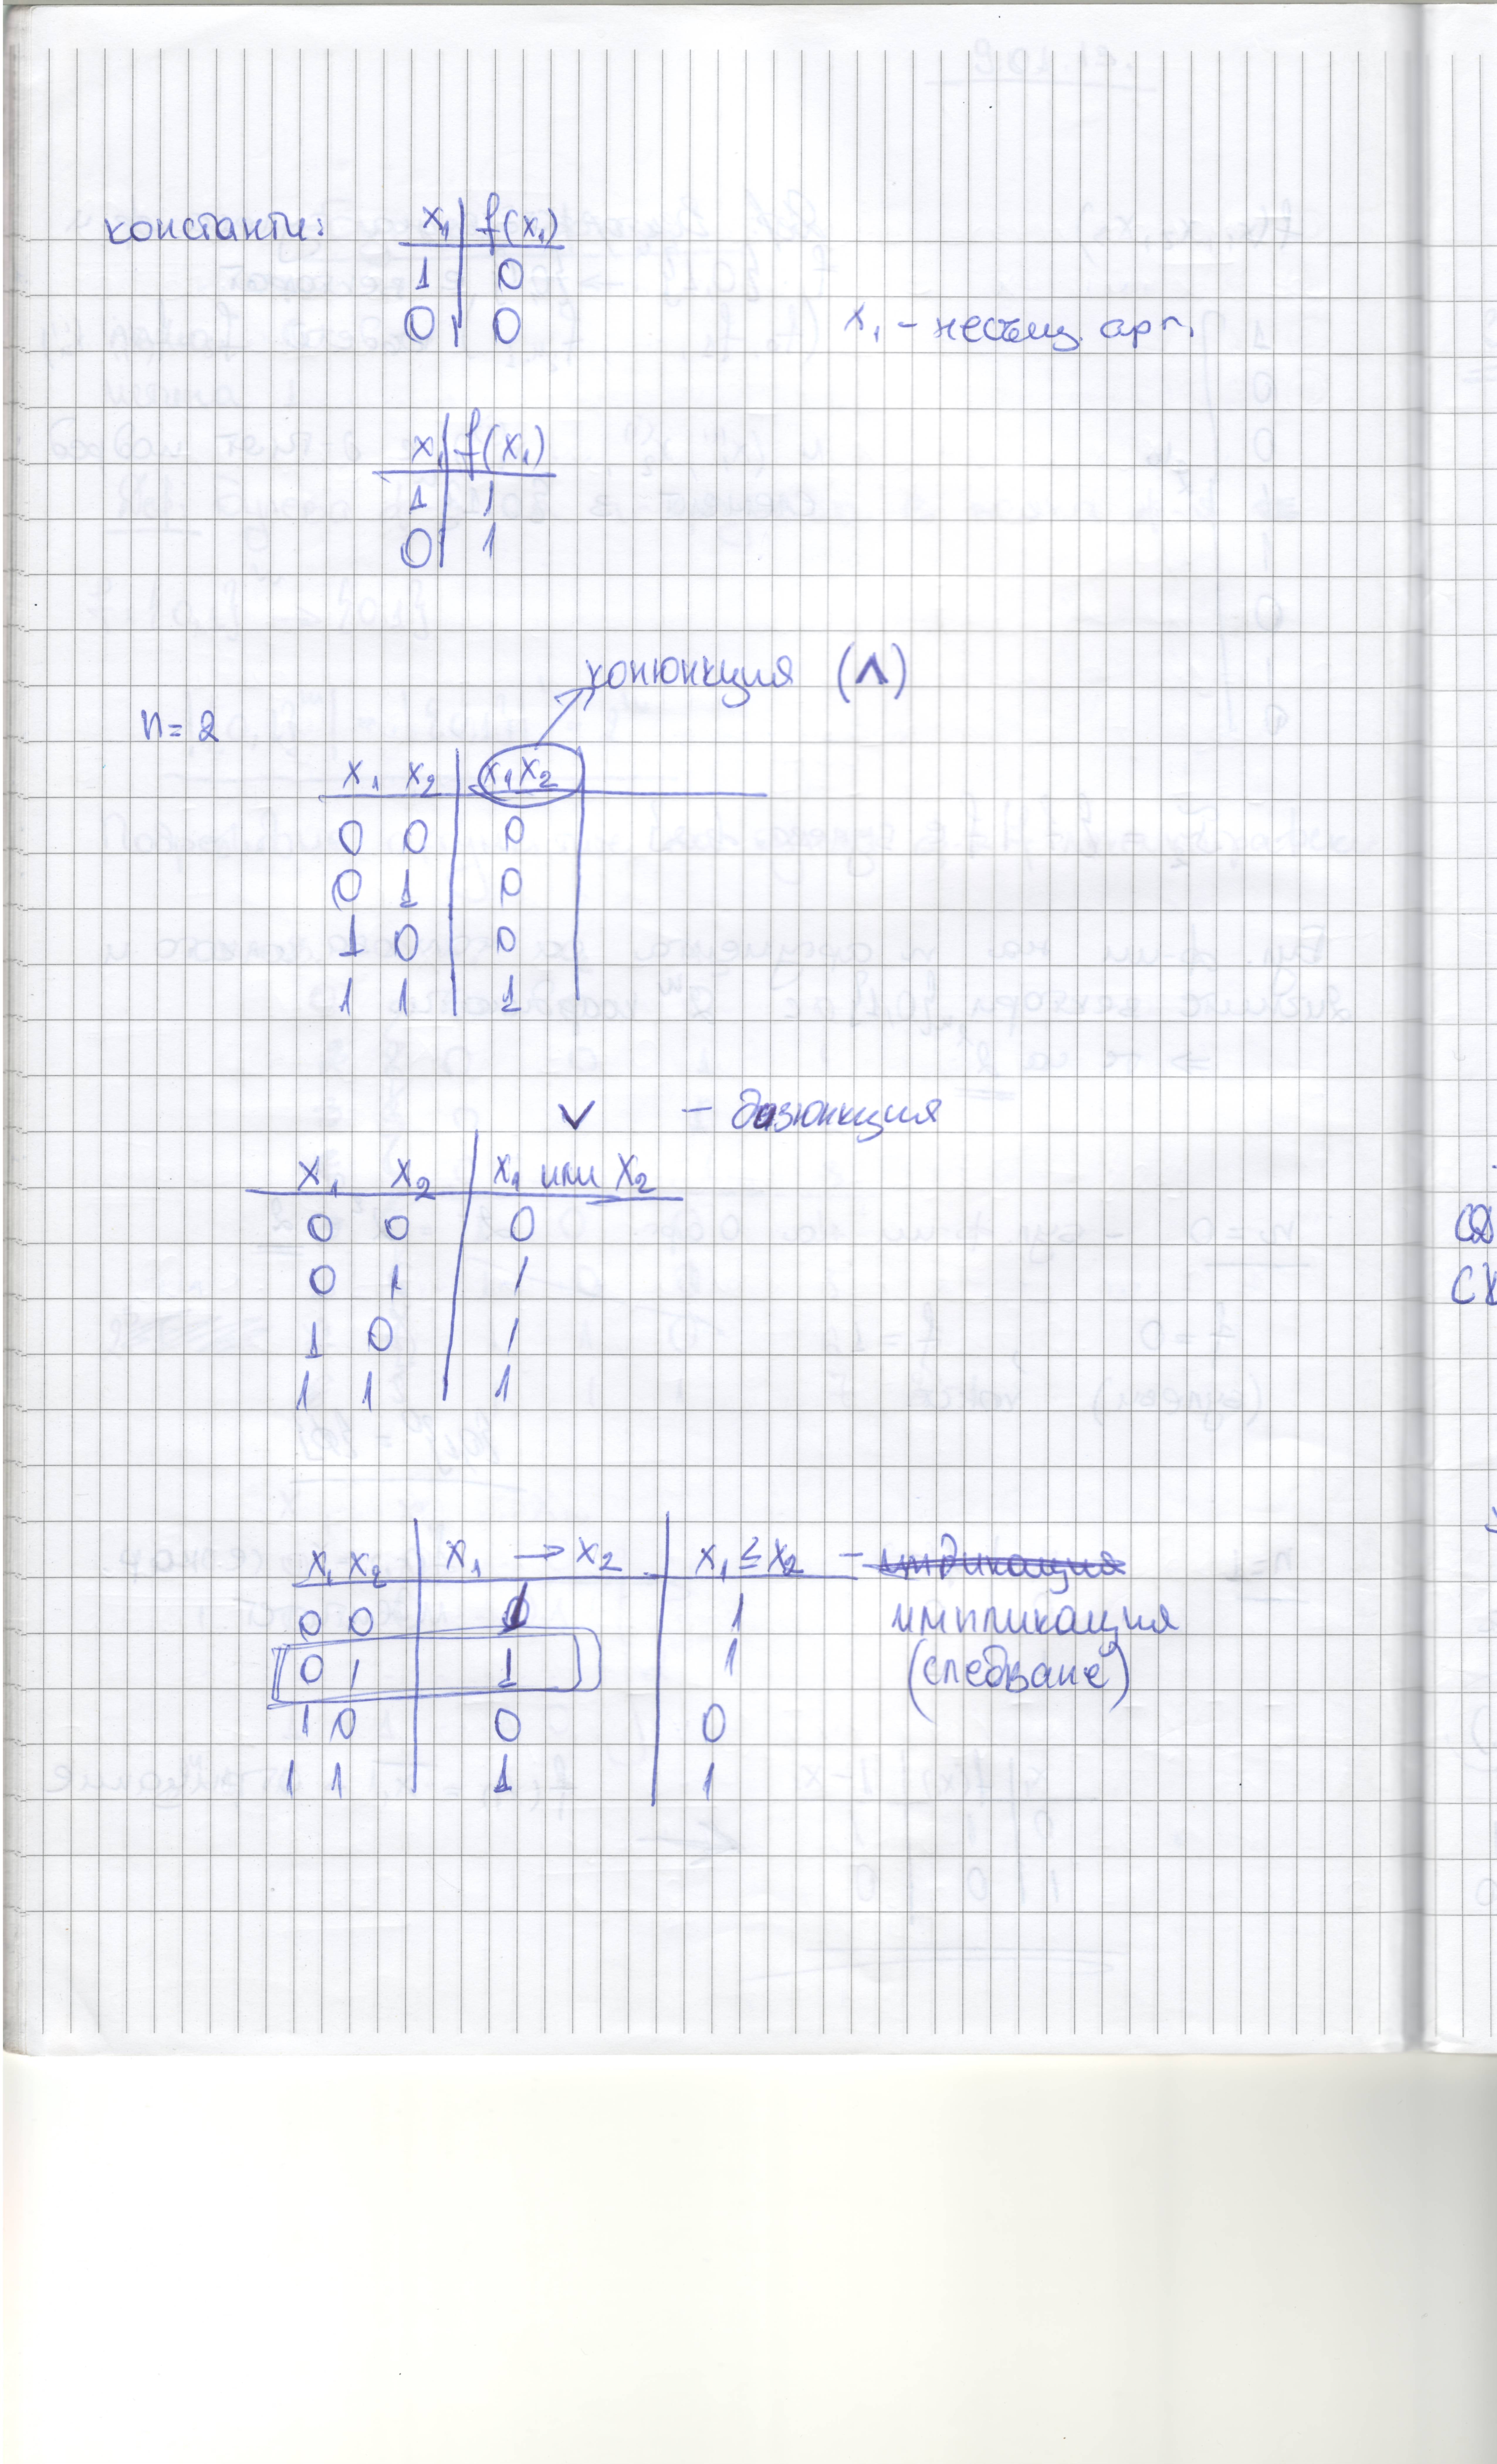 константи: x₁ | f(x₁)
1 | 0
0 | 0
x₁ - несъщ. арг.
x₁ | f(x₁)
1 | 1
0 | 1
конюнкция (∧)
n = 2
x₁ x₂ | x₁x₂
0 0 | 0
0 1 | 0
1 0 | 0
1 1 | 1
∨ - дизюнкция
x₁ x₂ | x₁ или x₂
0 0 | 0
0 1 | 1
1 0 | 1
1 1 | 1
x₁ x₂ | x₁ → x₂ | x₁ ≤ x₂ -
0 0 | 1 | 1 импликация
0 1 | 1 | 1 (следване)
1 0 | 0 | 0
1 1 | 1 | 1